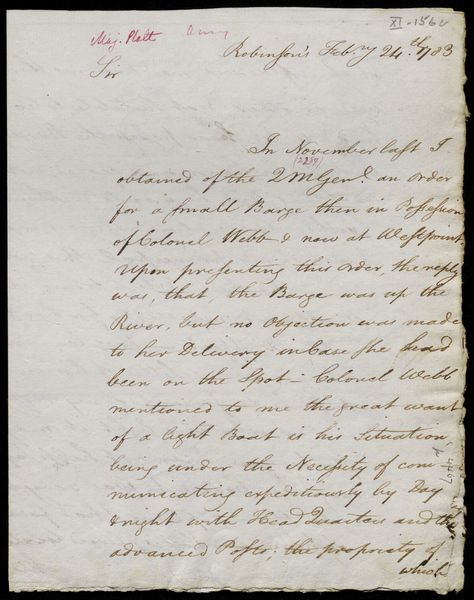 XI-1560
Maj. Platt Army
Robinson's Feb.ry 24.th 1783
Sir
In November last I
(2259)
obtained of the 2 M Genl. an order
for a small Barge then in Possession
of Colonel Webb & now at Westpoint
Upon presenting this order, the reply
was, that, the Barge was up the
River, but no Objection was made
to her Delivery in Case she had
been on the Spot - Colonel Webb
mentioned to me the great want
of a light Boat is his Situation
being under the Necessity of com-
municating expeditiously by Day
& night with Head Quarters and the
advanced Posts; the propriety of
which